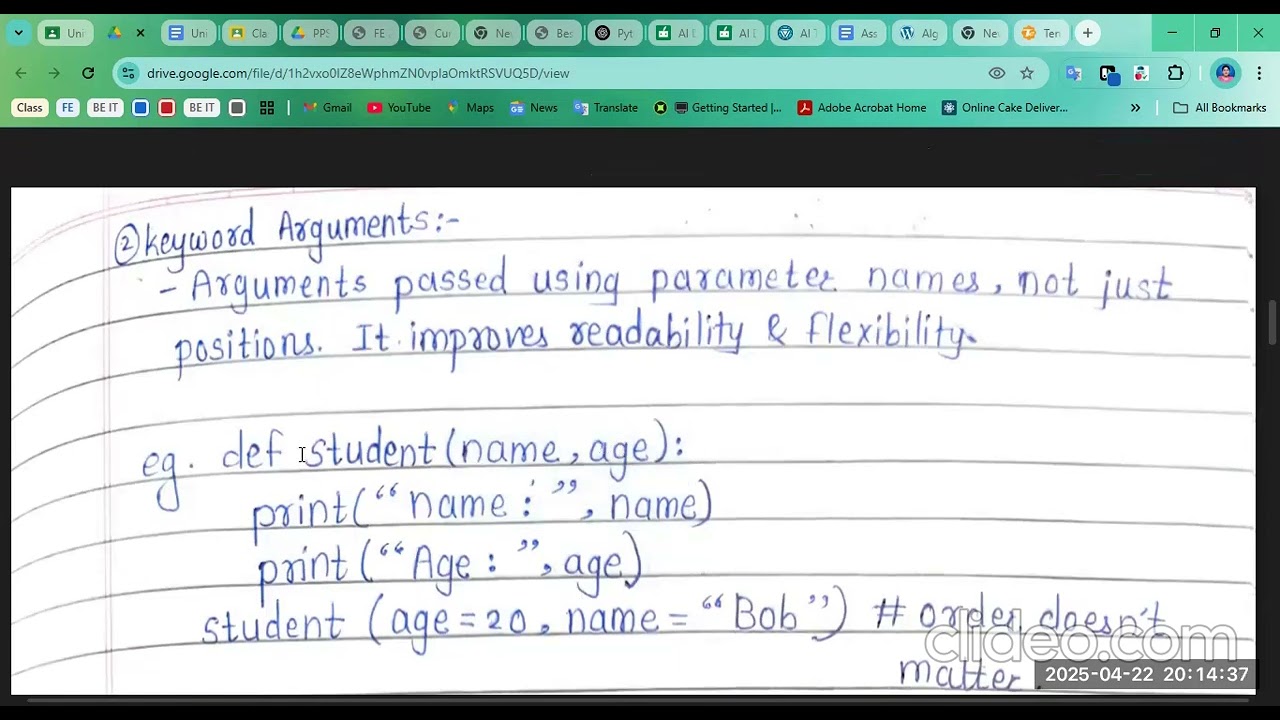 Uni
Uni
Cla
PPS
FE
Cur
Ne
Bes
Pyt
AI L
AI D
AI T
Ass
Alg
Ne
Ten
drive.google.com/file/d/1h2vxo0IZ8eWphmZN0vpbOmktRSVUQ5D/view
Class FE BE IT BE IT Gmail YouTube Maps News Translate Getting Started |... Adobe Acrobat Home Online Cake Deliver... » All Bookmarks
② keyword Arguments:-
- Arguments passed using parameter names, not just
positions. It improves readability & flexibility.
eg. def student(name, age):
print("name: ", name)
print("Age: ", age)
student (age=20, name = "Bob") # order doesn't
matter.
clideo.com
2025-04-22 20:14:37